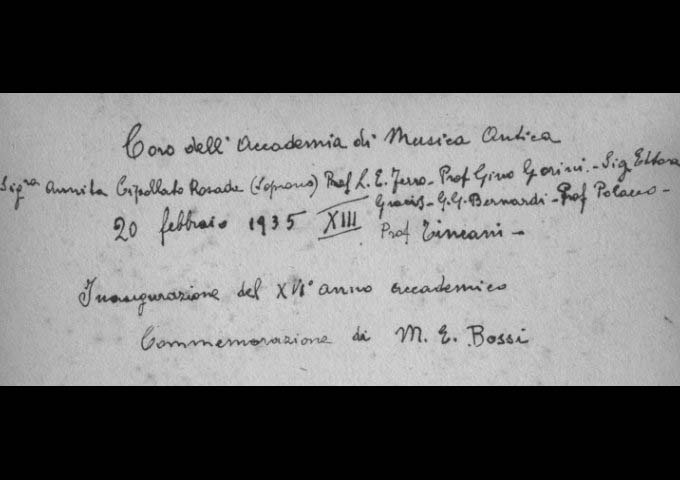 Coro dell'Accademia di Musica Antica
Sig.ra Annita Cipollato Rosade (Soprano) Prof L. E. Ferro - Prof Gino Gorini - Sig Ettore
Gracis - G. G. Bernardi - Prof Polacco -
20 febbraio 1935 XIII Prof Tincani -
Inaugurazione del XVI° anno accademico
Commemorazione di M. E. Bossi